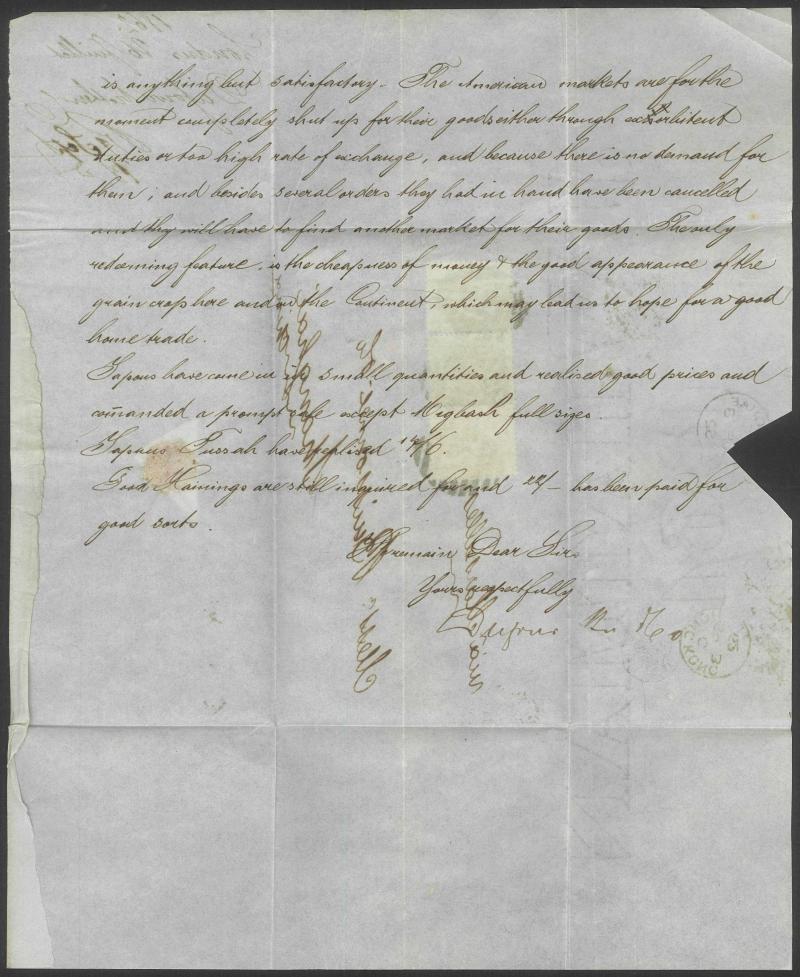 is anything but satisfactory. The American markets are for the
moment completely shut up for their goods either through exorbitent
duties or too high rate of exchange, and because there is no demand for
them; and besides several orders they had in hand have been cancelled
and thy will have to find another market for their goods. The only
redeeming feature, is the cheapness of money & the good appearance of the
grain crop here and on the Continent, which may lead us to hope for a good
home trade.
Japons have come in in small quantities and realised good prices and
comanded a prompt sale except Mybash full sizes.
Japons Tussah have realised 14/6.
Good Hainings are still inquired for and 22/- has been paid for
good sorts.
remain Dear Sirs
Yours respectfully